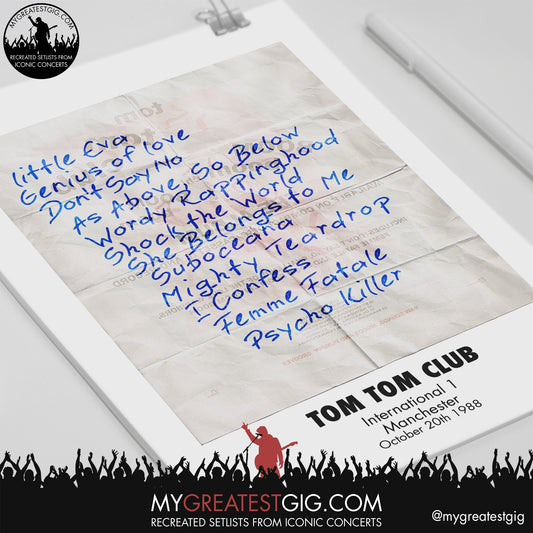 MYGREATESTGIG.COM
RECREATED SETLISTS FROM
ICONIC CONCERTS
little Eva
Genius of love
Don't Say No
As Above, So Below
Wordy Rappinghood
Shock the World
She Belongs to Me
Suboceana
Mighty Teardrop
I Confess
Femme Fatale
Psycho Killer
TOM TOM CLUB
International 1
Manchester
October 20th 1988
MYGREATESTGIG.COM
RECREATED SETLISTS FROM ICONIC CONCERTS
@mygreatestgig